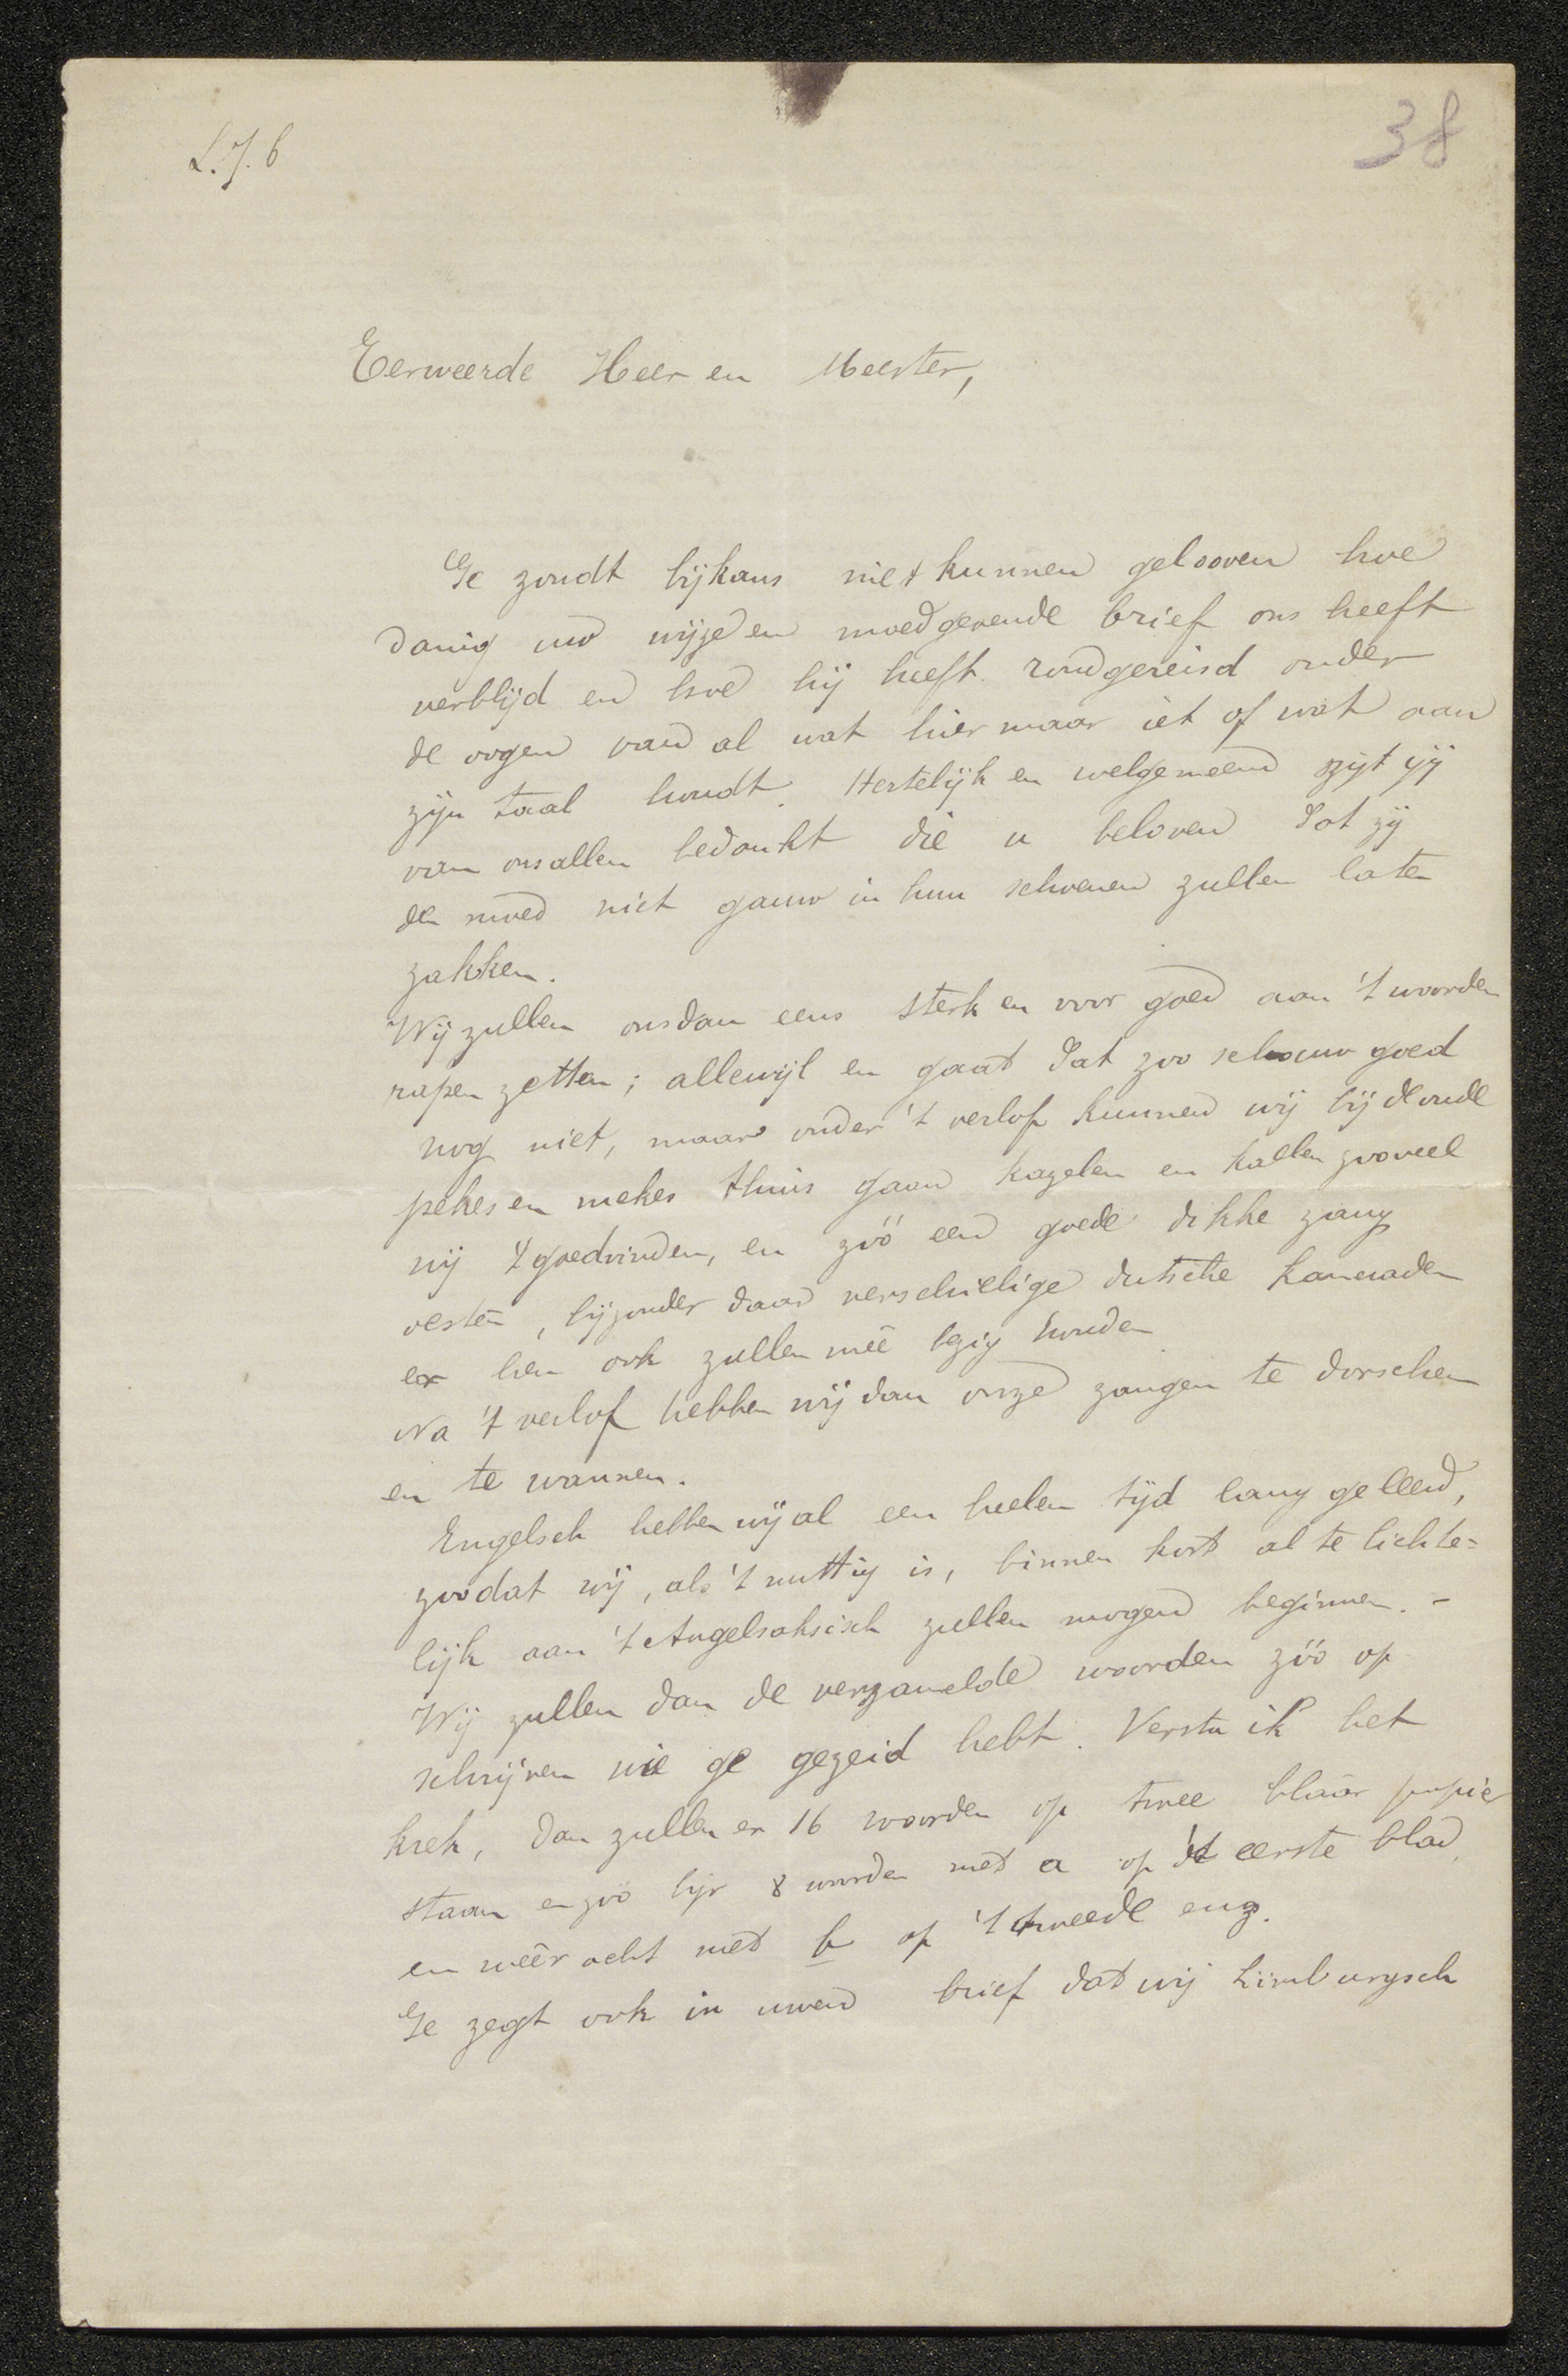 L.J.6
38
Eerweerde Heer en Meester,
Ge zoudt bijkans niet kunnen gelooven hoe
danig uw wijze en moedgevende brief ons heeft
verblijd en hoe hij heeft rondgereisd onder
de oogen van al wat hier maar iet of wat aan
zijn taal houdt. Hertelijk en welgemeend zijt gij
van ons allen bedankt die u beloven dat zij
den moed niet gauw in hun schoenen zullen laten
zakken.
Wij zullen ons dan eens sterk en voor goed aan 't woorden
rapen zetten; allewijl en gaat dat zoo schouw goed
nog niet, maar onder 't verlof kunnen wij bij de oude
pekes en mekes thuis gaan kazelen en kallen zooveel
wij 't goedvinden, en zóó een goede dikke zang
oesten, bijzonder daar verschillige dutsche kameraden
er hen ook zullen meê bezig houden.
Na 't verlof hebben wij dan onze zangen te dorschen
en te wannen.
Engelsch hebben wij al een heelen tijd lang geleerd,
zoodat wij, als 't nuttig is, binnen kort al te lichte-
lijk aan 't Angelsaksisch zullen mogen beginnen. -
Wij zullen dan de verzamelde woorden zóó op
schrijven wie ge gezeid hebt. Versta ik het
krek, dan zullen er 16 woorden op twee blaâr papier
staan en zóó bijv 8 woorden met a op 't eerste blad
en weêr acht met b op 't tweede enz.
Ge zegt ook in uwen brief dat wij Limburgsch